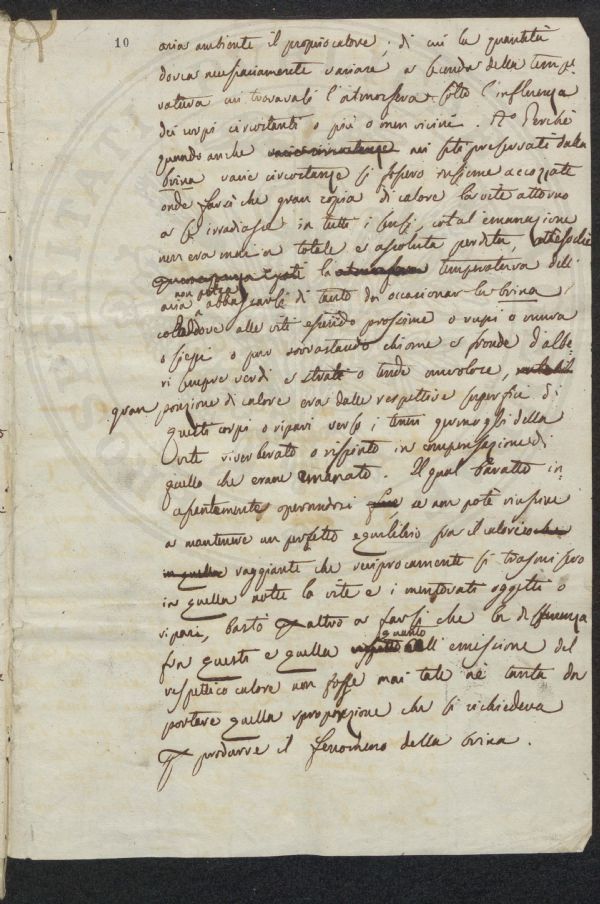 10
aria ambiente il proprio calore; di cui la quantità
dovea necessariamente variare a seconda della tempe
ratura cui trovavasi l'atmosfera sotto l'influenza
dei corpi circostanti o più o men vicini. Perché
quando anche varie circostanze nei siti preservati dalla
brina varie circostanze si fosero insieme accozzate
onde farsi che gran copia di calore la vite attorno
a se irradiasse in tutti i sensi, cotal emanazione
non era mai in totale e assoluta perdita,
la atmosfera temperatura dell'
non potea
aria abbassarsi di tanto da occasionar la brina
colladdove alle viti essendo prossime o rupi o mura
o siepi o pur sovrastando chiome e fronde d'albe
ri sempre verdi e strati o tende nuvolose,
gran porzione di calore era dalle rispettive superficie di
questi corpi o ripari verso i teneri germogli della
vite riverberato o rispinto in compensagione di
quello che erane emanato. Il qual baratto in
cessantemente operandosi se non potè riuscire
a mantenere un perfetto equilibrio fra il calorico che
in quella raggiante che reciprocamente si trasmisero
in quella notte la vite e i mentovati oggetti o
ripari, bastò per altro a farsi che la differenza
fra questi e quella quanto all'emissione del
rispettico calore non fosse mai tale nè tanta da
portare quella sproporzione che si richiedeva
per produrre il fenomeno della brina.